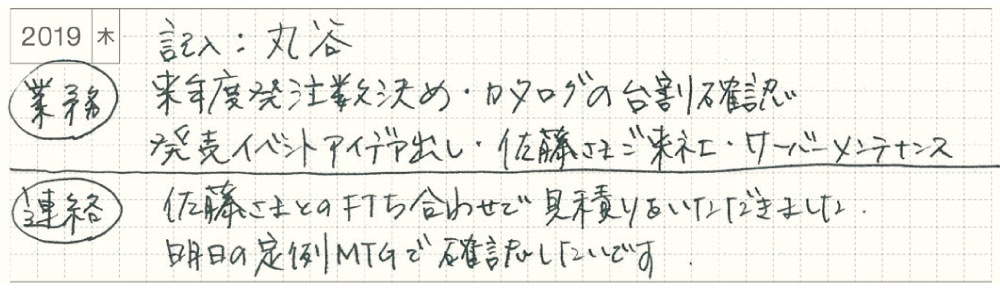 2019 木 記入：丸谷
業務 来年度発注数決め・カタログの台割確認
発売イベントアイデア出し・佐藤さまご来社・サーバーメンテナンス
連絡 佐藤さまとの打ち合わせで見積りをいただきました.
明日の定例MTGで確認したいです.